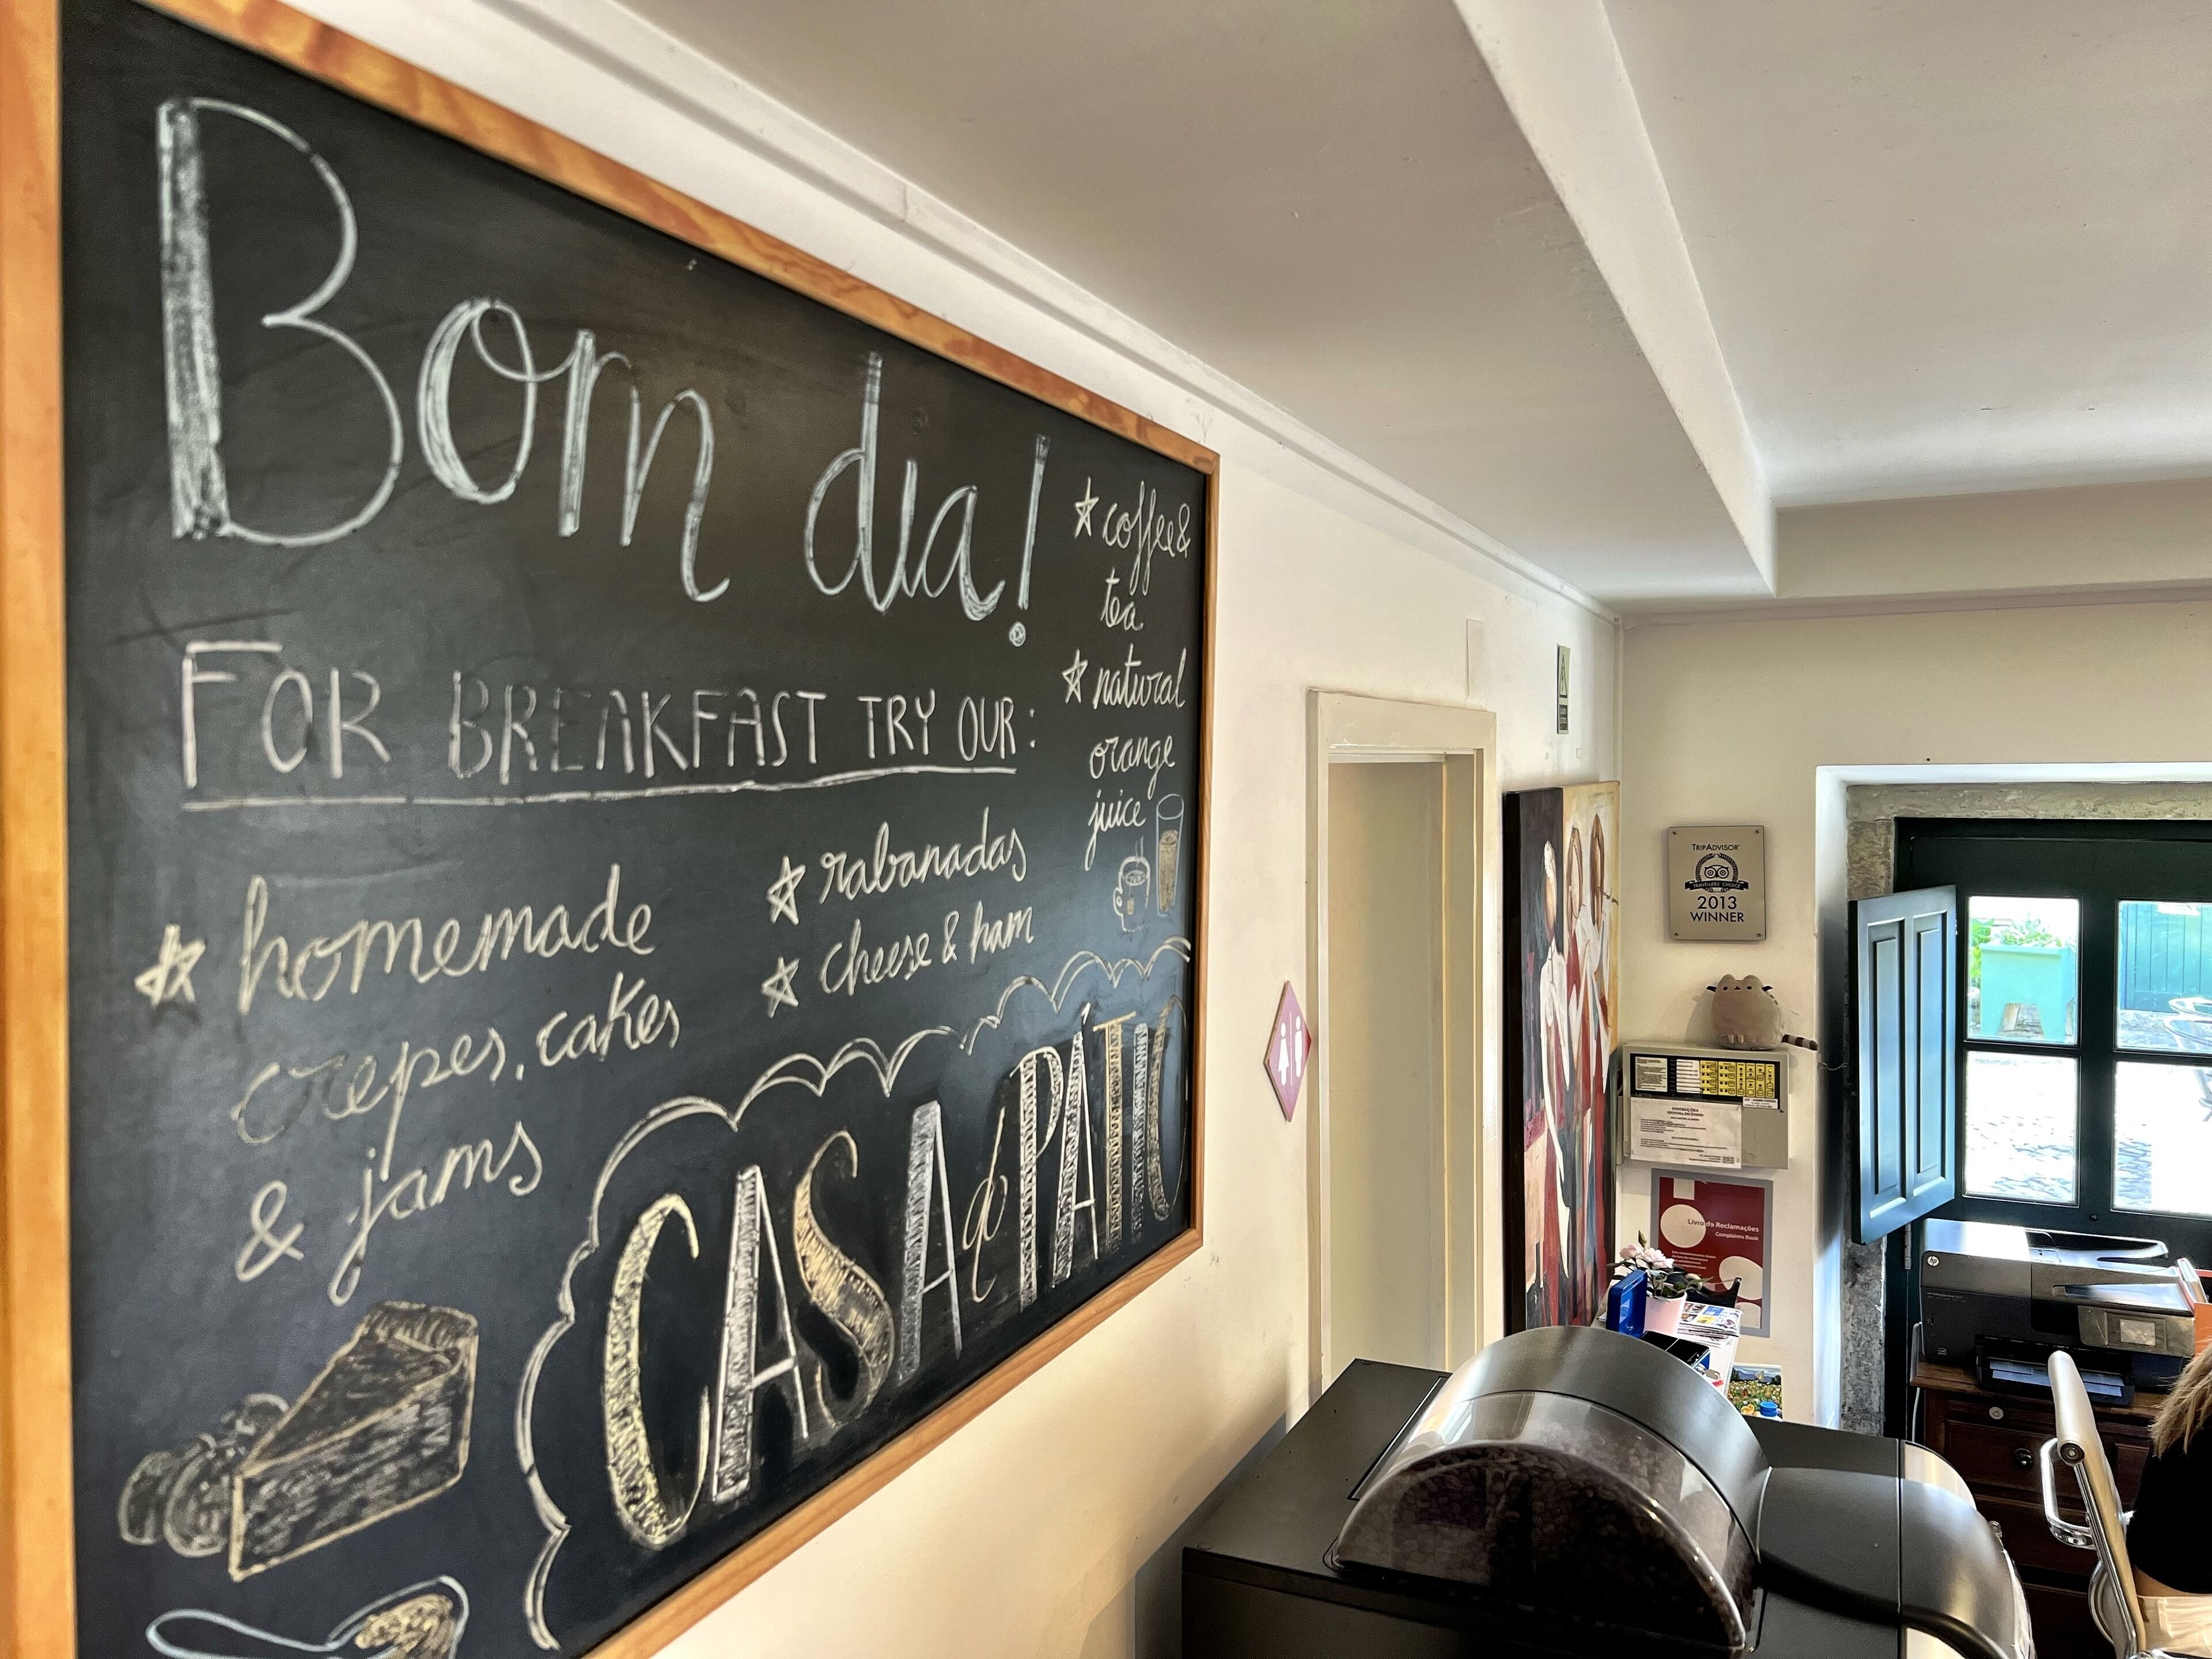 Bom dia!
FOR BREAKFAST TRY OUR:
☆ homemade
crepes, cakes
& jams
☆ rabanadas
☆ cheese & ham
☆ coffee &
tea
☆ natural
orange
juice
CASA do PÁTIO
TRIPADVISOR
TRAVELLERS' CHOICE
2013
WINNER
INSTRUÇÕES
Livro de Reclamações
Complaints Book
hp